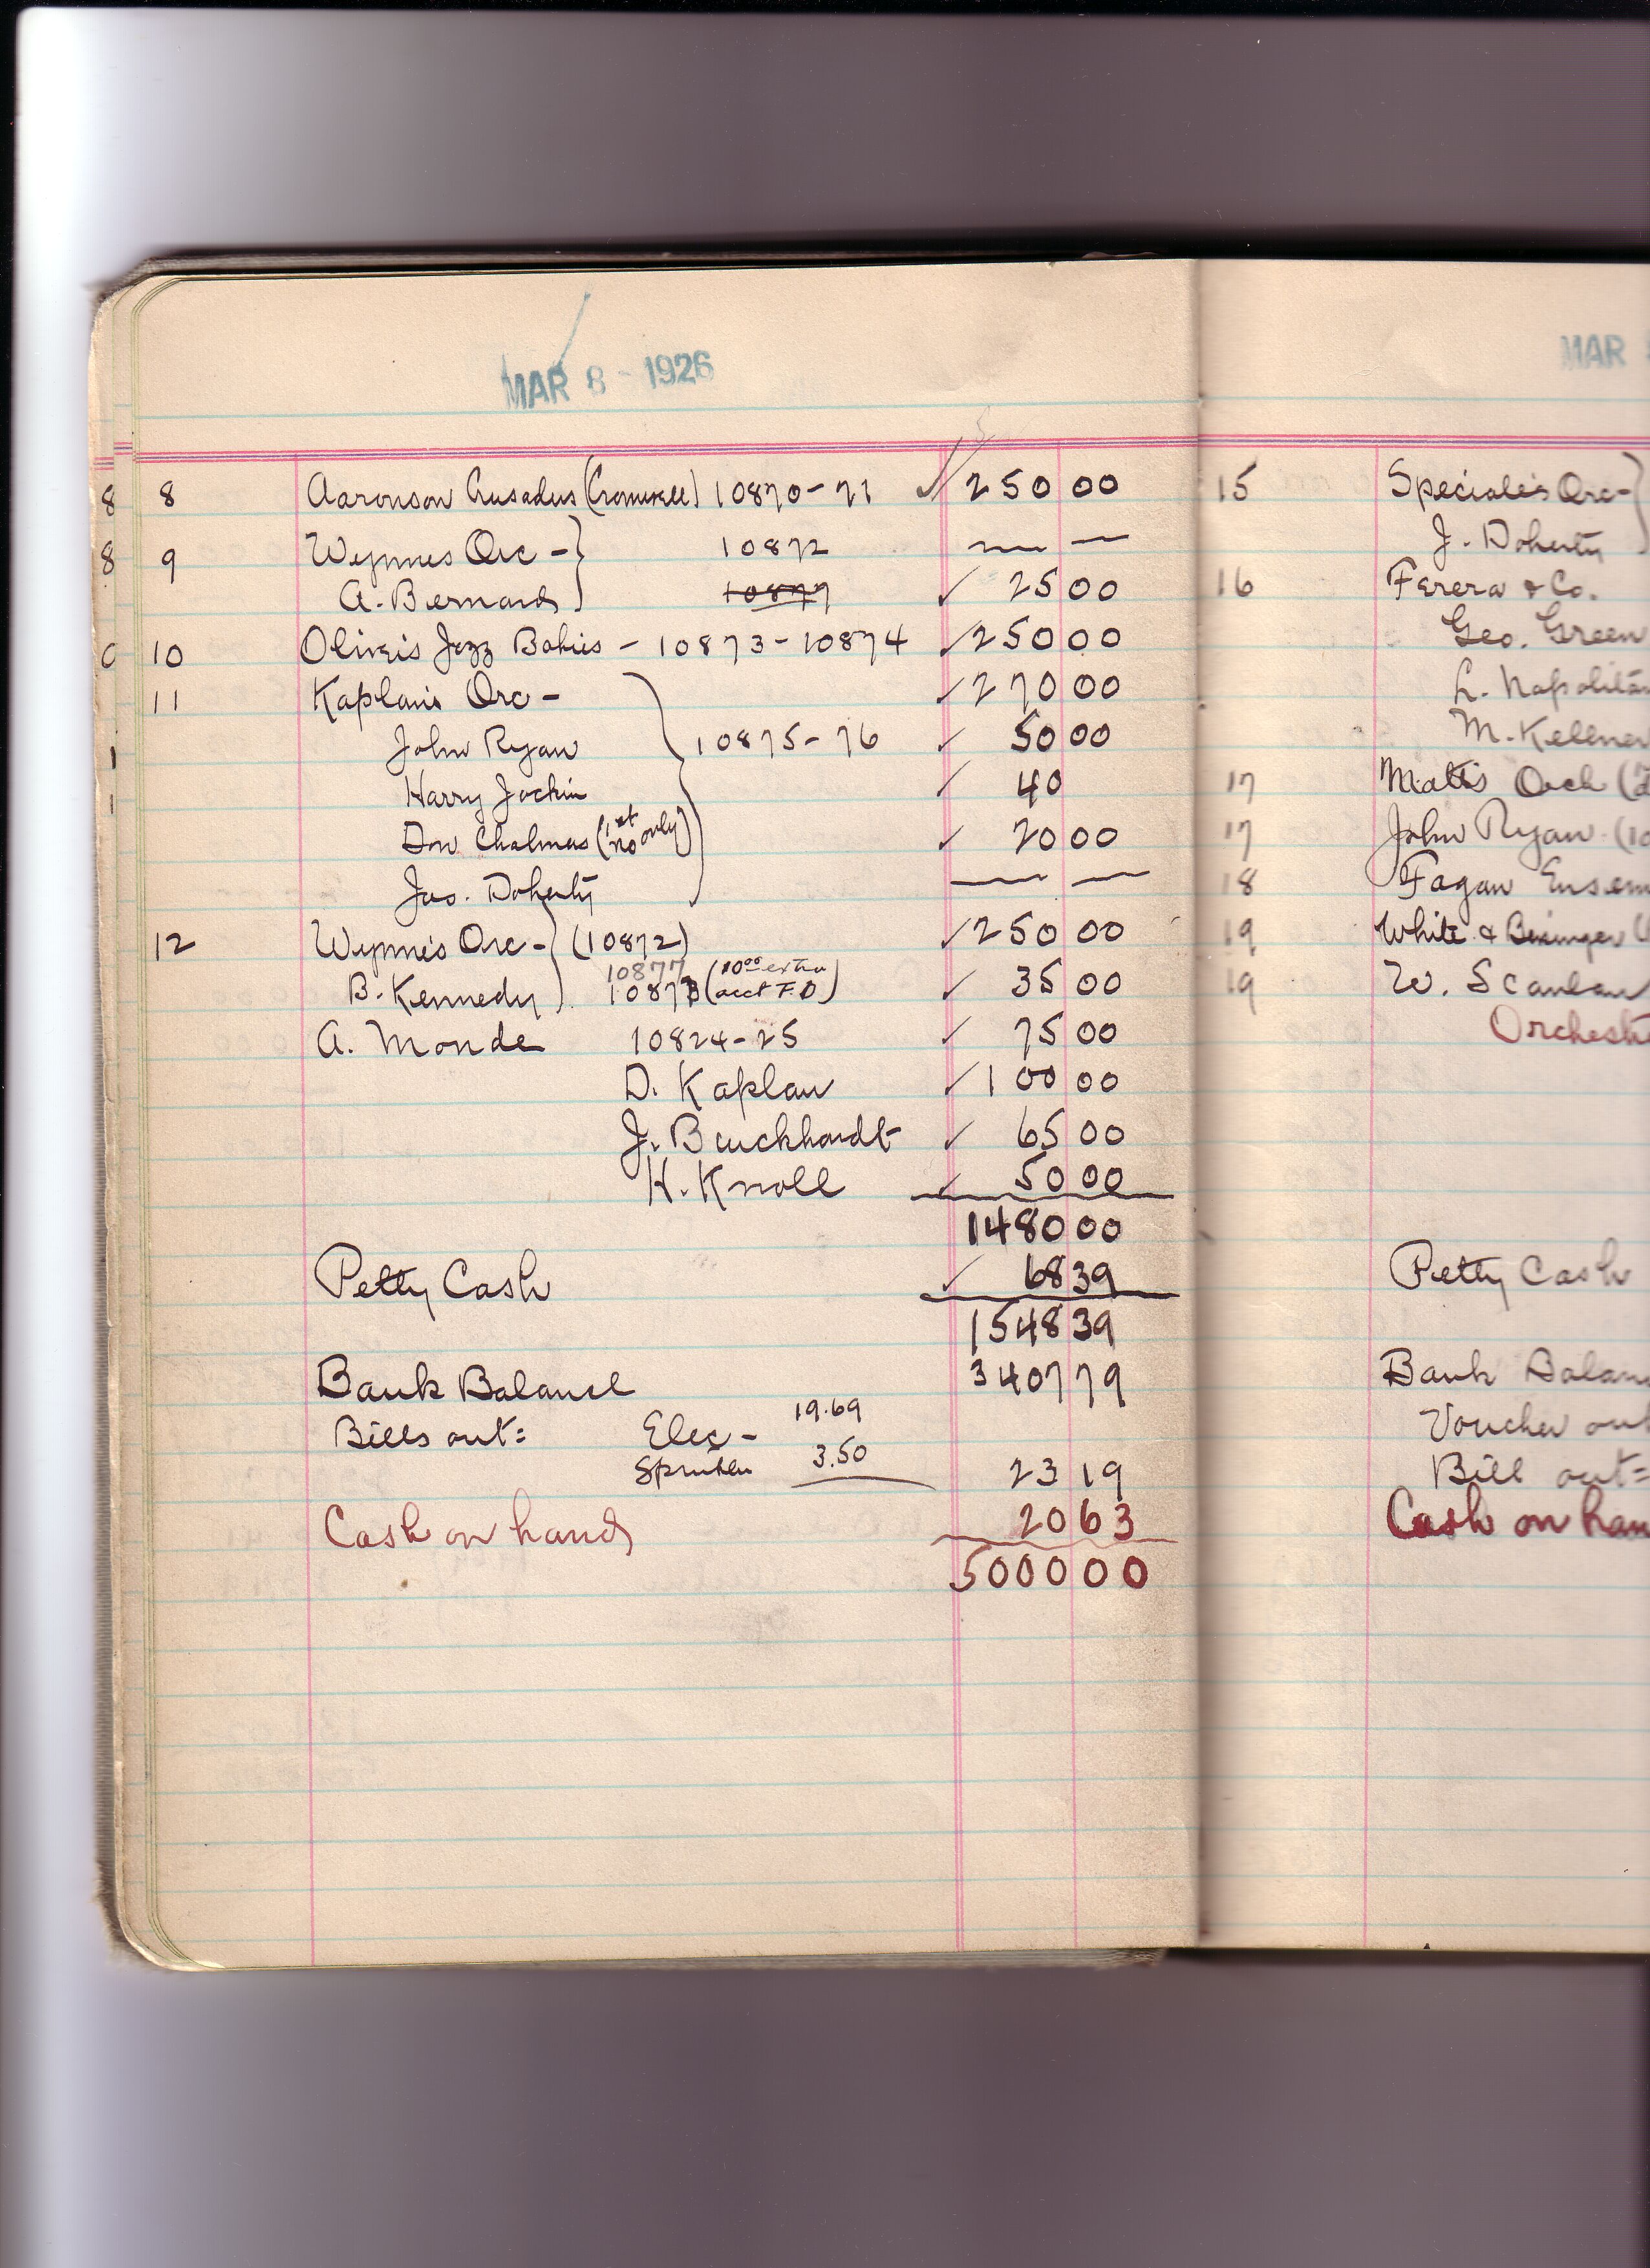 MAR 8 - 1926
8 8 Aaronson Crusaders (Cromwell) 10870-71 ✓ 250 00
8 9 Wynnes Orc - 10872 — —
A. Bernard 10877 ✓ 25 00
0 10 Olivers Jazz Babies - 10873-10874 ✓ 250 00
11 Kaplan's Orc - ✓ 270 00
1 John Ryan 10875-76 ✓ 50 00
1 Harry Jockin ✓ 40
Don Chalmers (1st no only) ✓ 20 00
Jas. Doherty — —
12 Wynne's Orc - (10872) ✓ 250 00
10877 (10 00 extra
B. Kennedy 1087 acct F.D) ✓ 35 00
A. Monde 10824-25 ✓ 75 00
D. Kaplan ✓ 100 00
J. Burckhardt ✓ 65 00
H. Knoll ✓ 50 00
1480 00
Petty Cash ✓ 68 39
1548 39
Bank Balance 3407 79
Bills out: Elec - 19.69
3.50
23 19
Cash on hand 20 63
5000 00
MAR
15 Speciale's Orc-
J. Doherty
16 Ferera & Co.
Geo. Green
L. Napolita
M. Kellner
17 Matt's Orch (
17 John Ryan (10
18 Fagan Ensem
19 White &
19 W. Scanlan
Orchest
Petty Cash
Bank Balan
Voucher out
Bill out=
Cash on han